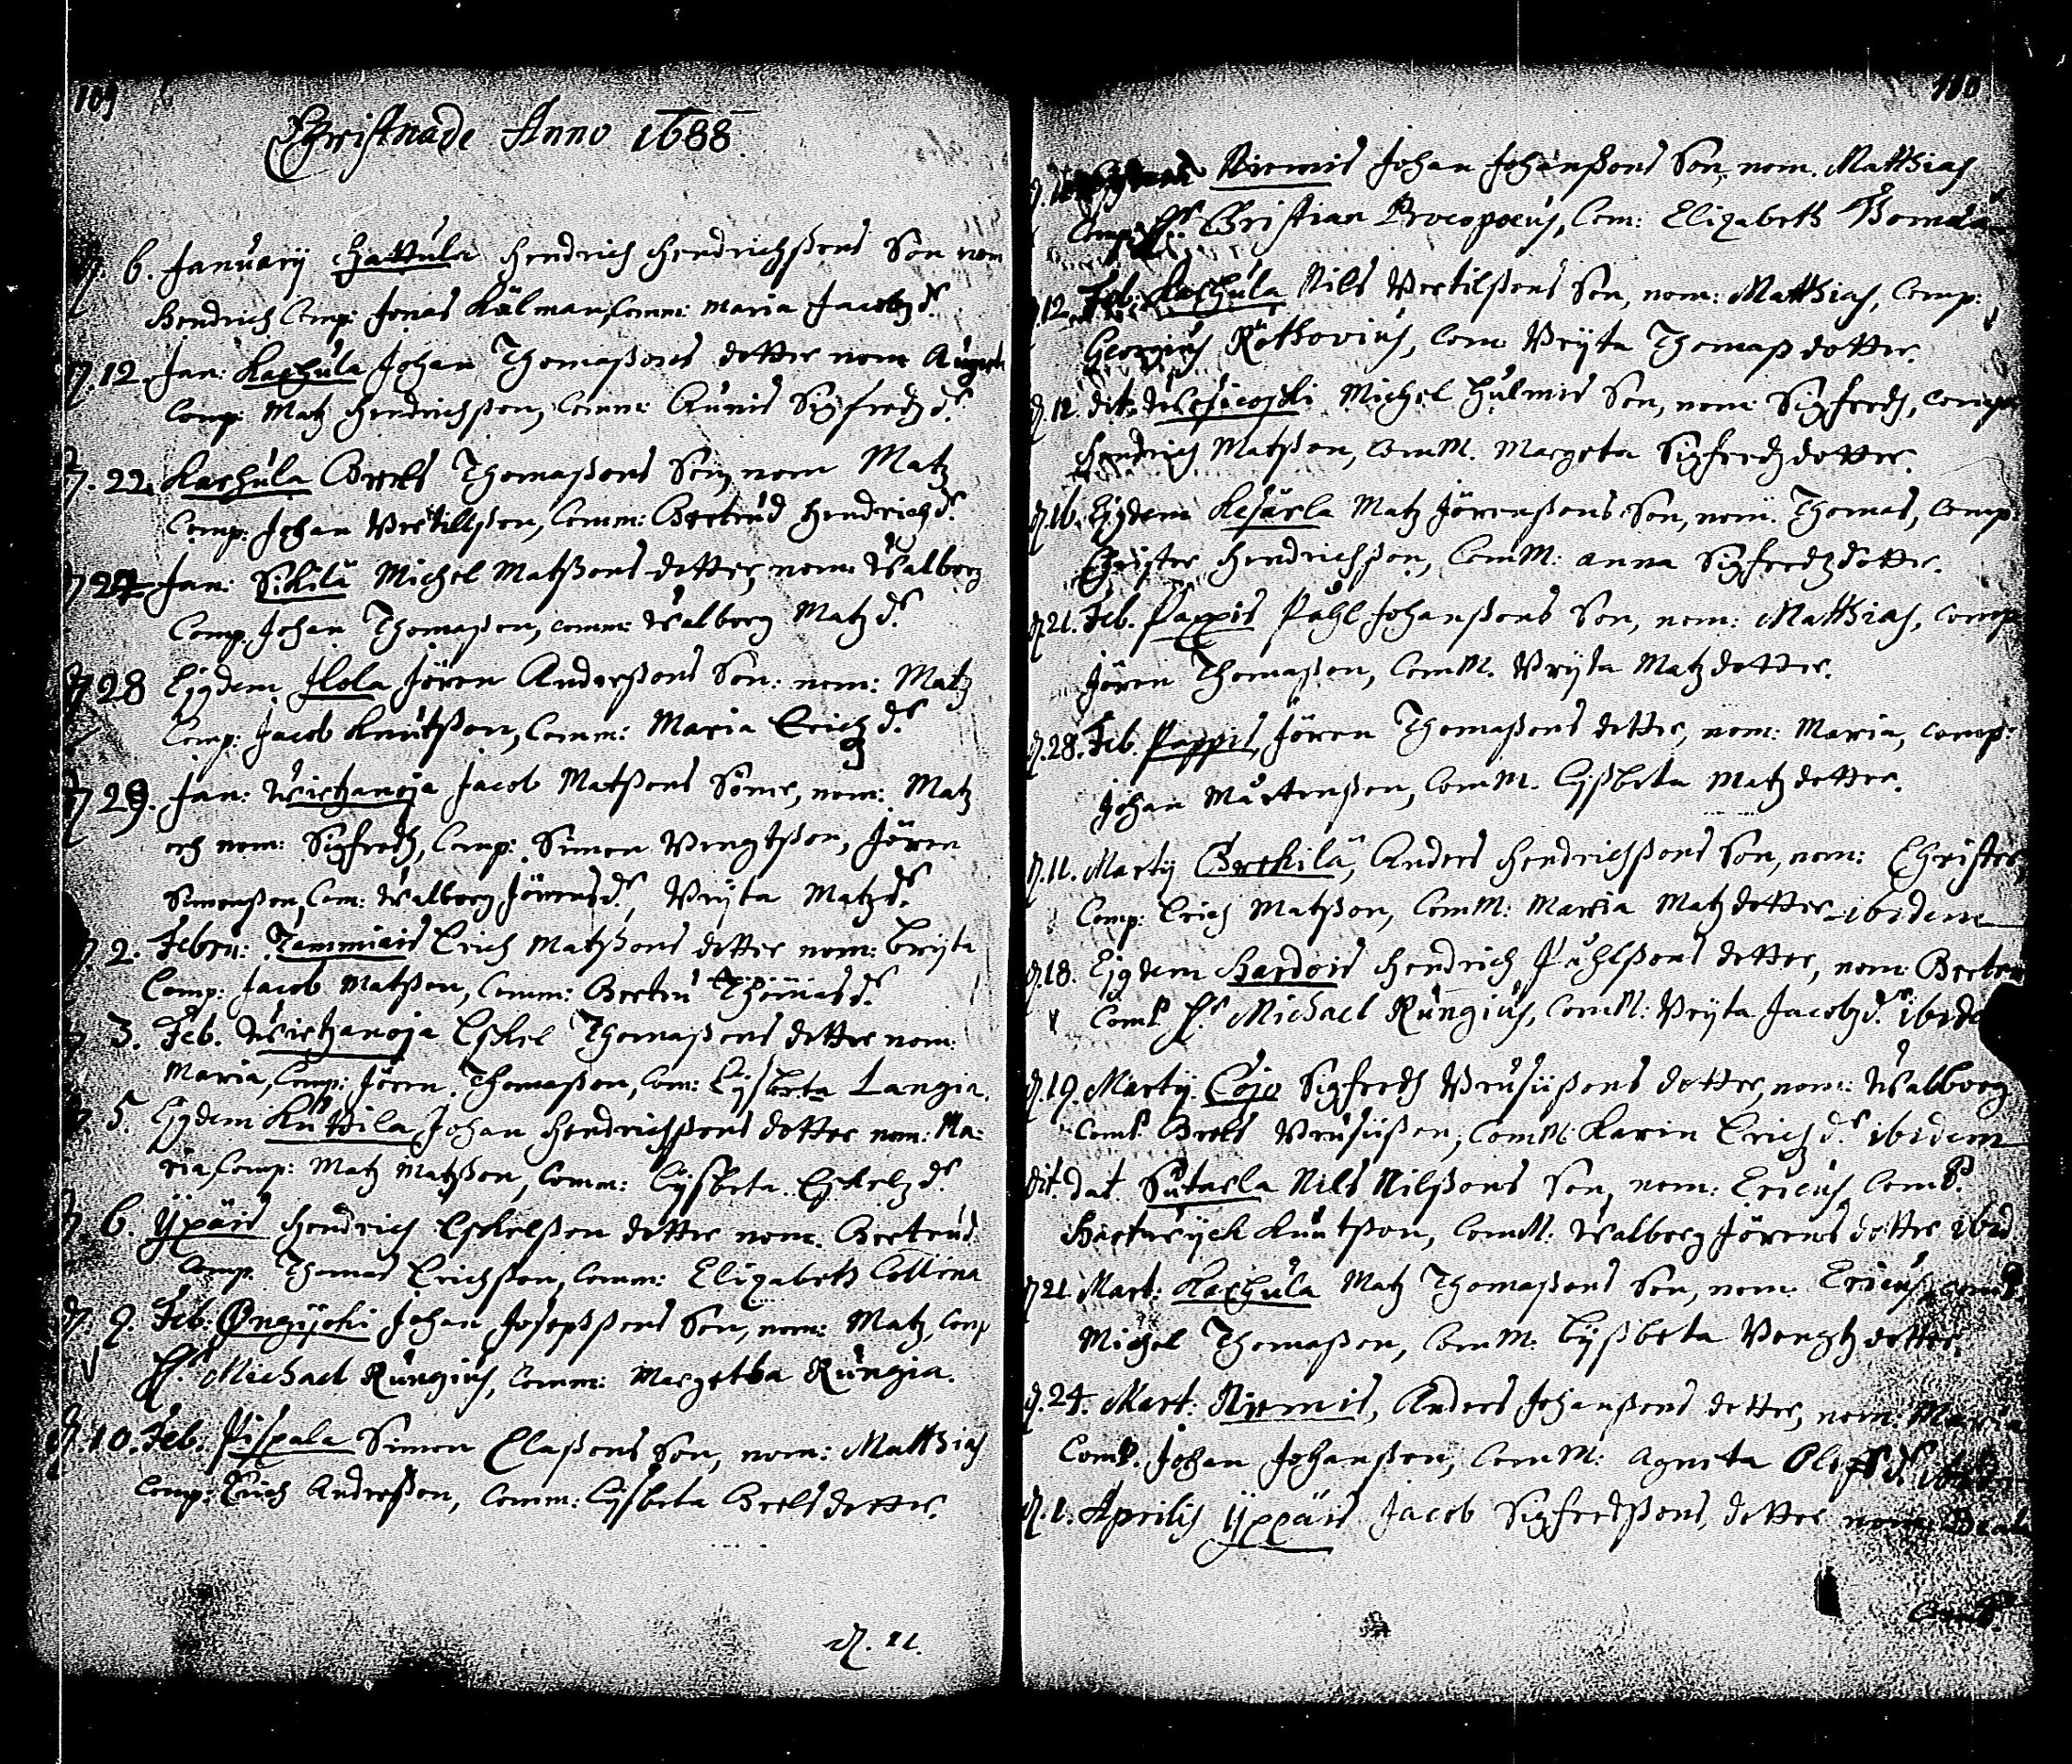 109
Christnade Anno 1688
d. 6. January Hattula Hendrich Hendrichssons Son nom
Hendrich Comp: Jonas Kälman, Comm: Maria Jacobzdr.
d. 12. Jan: Karhula Johan Thomassons dotter nom
Comp: Matz Hendrichsson, Comm: Aunis Sigfredzdr.
d. 22. Karhula Bertils Thomassons Son, nom Matz
Comp: Johan Bertillsson, Comm: Bertrud Hendrichdr.
d 24 Jan: Sikilä Michel Matssons dotter, nom: Walborg
Comp. Johan Thomasson, comm: Walborg Matzdr.
d 28 Ejgdem Ilola Jören Anderssons Son: nom: Matz
Comp: Jacob Knutsson, Comm: Maria Erichzdr.
d 29. Jan: Wirtzanoja Jacob Matssons Söner, nom: Matz
och nom: Sigfredh, Comp: Simon Bengtsson, Jören
Simonsson, Com: Walborg Jörensdr, Bryta Matzdr.
d. 2. Febru: Tammiais Erich Matssons dotter nom: Bryta
Comp: Jacob Matsson, Comm: Bertru Thomasdr.
d 3. Feb. Wirtzanoja Eskel Thomassons dotter nom:
Maria, Comp: Jören Thomasson, Com: Lysbeta Langia.
d. 5. Ejgdem Kuttila Johan Hendrichssons dotter nom: Ma:
ria, Comp: Matz Matsson, Comm: Lysbeta Eskelzdr.
d 6. Ypäis Hendrich Eskelsson dotter nom. Bertrud
Comp. Thomas Erichsson, Comm: Elizabeth Collina
d. 9. Feb: Öngijoki Johan Josepssons Son, nom: Matz, Comp
Hr. Michael Rungius, Comm: Margetha Rungia.
d. 10. Feb. Pispala Simon Classons Son, nom: Matthias
Comp: Erich Andersson, Comm: Lysbeta Bertsdotter.
d. 11.
110
Niemis Johan Johanssons Son, nom. Matthias
Comp: Hr. Christian Procopoeus, Com: Elizabeth
d. 12. Feb: Karhula Nils Bertilssons Son, nom: Matthias, Comp:
Georgius Rothovius, Com Bryta Thomasdotter.
d. 12. dit: Michel Hulmis Son, nom: Sigfredh, Comp
Hendrich Matsson, ComM. Margeta Sigfredzdotter.
d. 16. Ejgdem Kesärla Matz Jörenssons Son, nom. Thomas, Comp:
Christer Hendrichsson, ComM: anna Sigfredzdotter.
d 21. Feb. Pappis Påhl Johanssons Son, nom: Matthias, Comp
Jören Thomasson, ComM. Bryta Matzdotter.
d. 28. Feb. Pappis, Jören Thomassons dotter, nom: Maria, Comp:
Johan Mårtensson, ComM. Lysbeta Matzdotter.
d. 11. Marty Anders Hendrichssons Son, nom: Christer,
Comp: Erich Matsson, ComM: Maria Matzdotter ibidem
d. 18. Ejgdem Hardois Hendrich Påhlssons dotter, nom: Bertru
ComP Hr. Michael Rungius, ComM: Bryta Jacobzdr. ibide
d. 19. Marty. Cojo Sigfredh Brusiussons dotter, nom: Walborg
ComP. Bertils Brusiusson, ComM: Karin Erichzdr. ibidem
dit. dat. Sutarla Nils Nilssons Son, nom: Ericus, ComP.
Hartwyck Knutsson, ComM: Walborg Jörensdotter ibid
d 21 Mart: Karhula Matz Thomassons Son, nom: Ericus, ComP
Michel Thomasson, ComM. Lysbeta Bengtzdotter.
d. 24. Mart: Niemis, Anders Johanssons dotter, nom: Maria
ComP. Johan Johansson, ComM: Agneta
d. 1. Aprilis Yppäis Jacob Sigfredssons, dotter nom:
ComP.